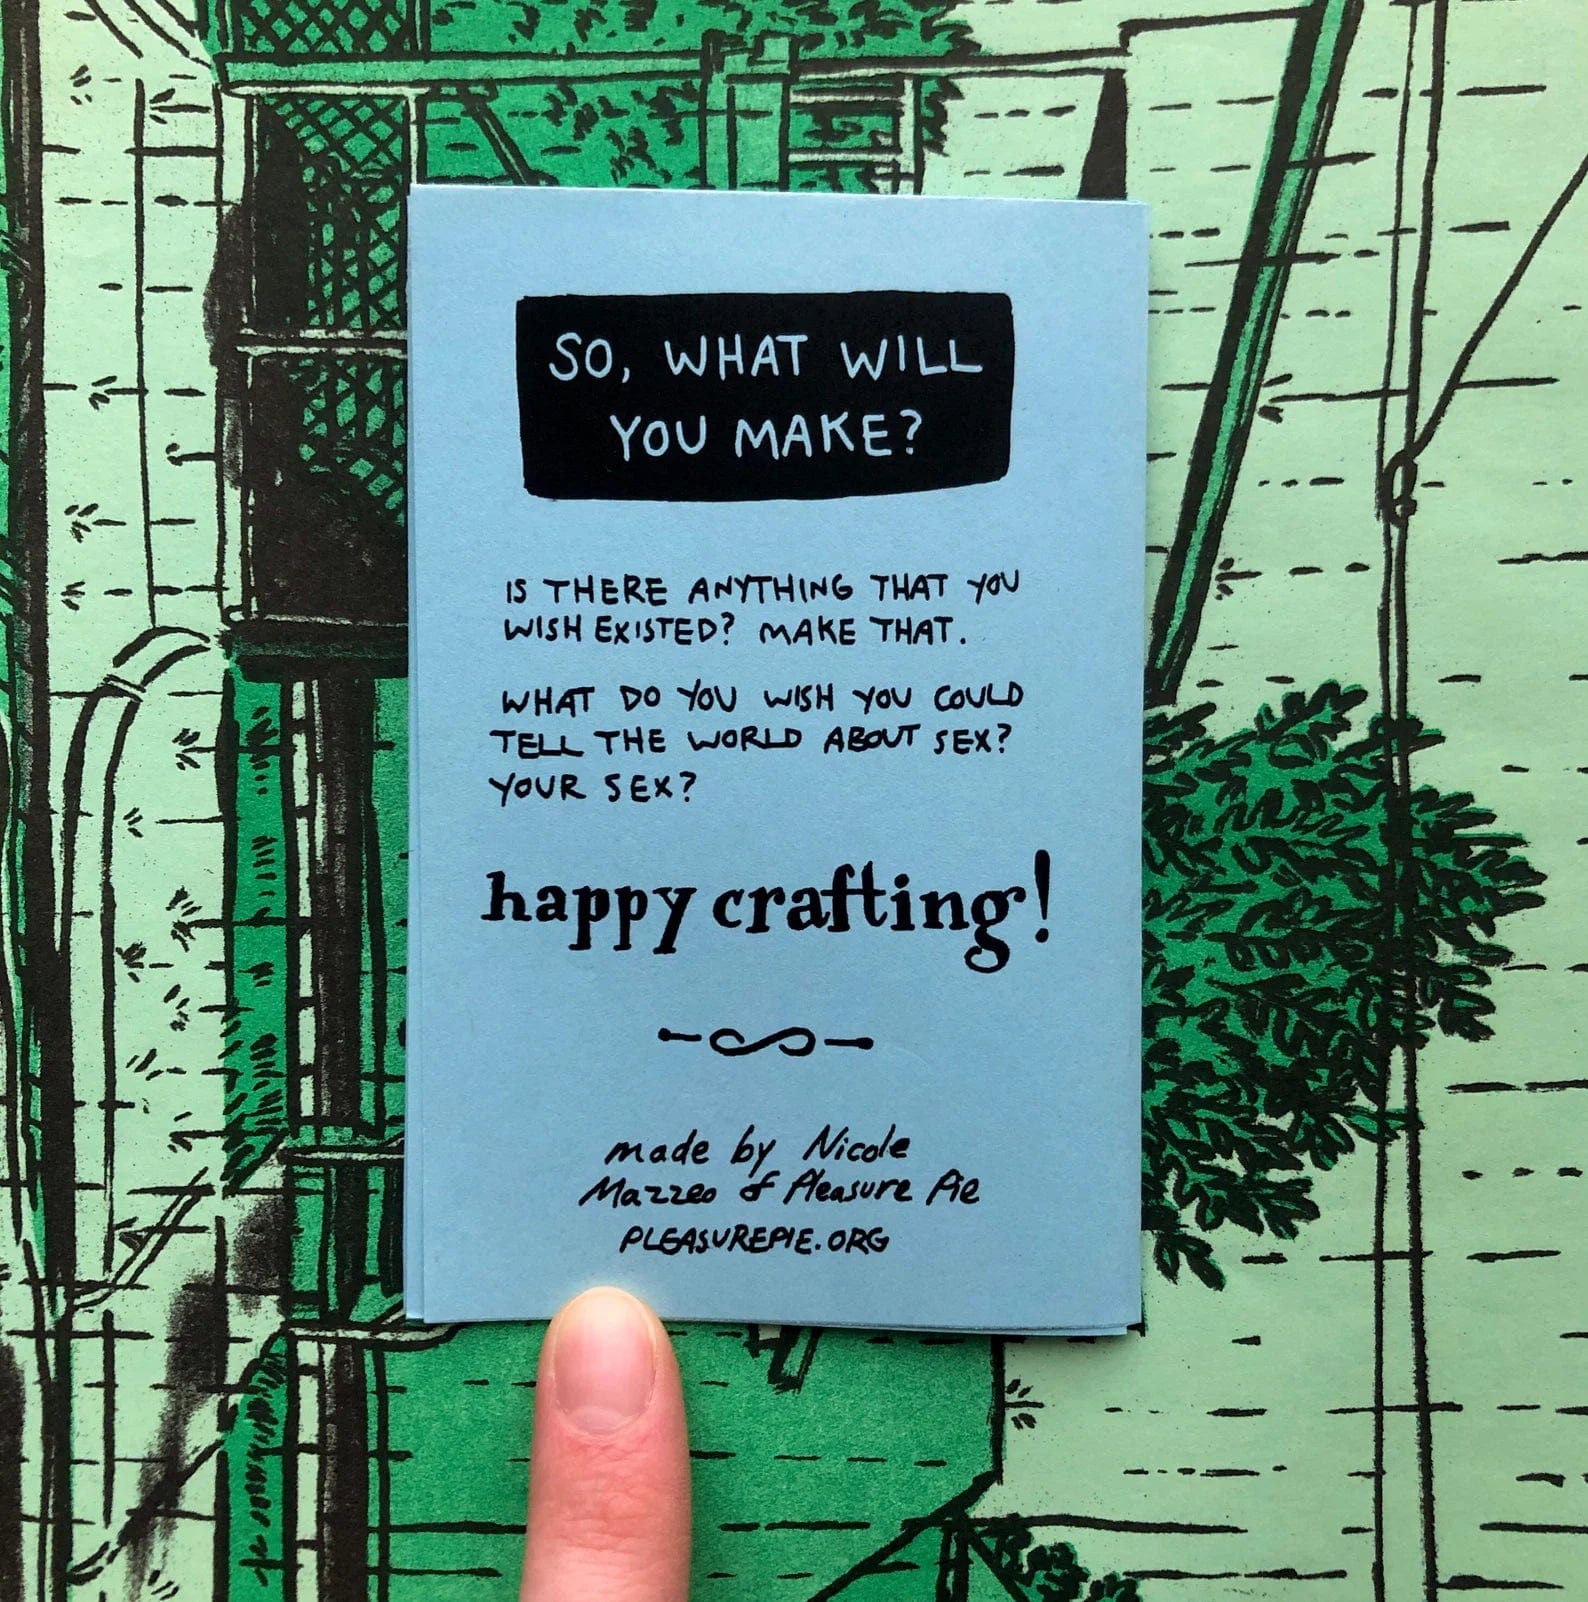 SO, WHAT WILL
YOU MAKE?
IS THERE ANYTHING THAT YOU
WISH EXISTED? MAKE THAT.
WHAT DO YOU WISH YOU COULD
TELL THE WORLD ABOUT SEX?
YOUR SEX?
happy crafting!
made by Nicole
Mazzeo of Pleasure Pie
PLEASUREPIE.ORG